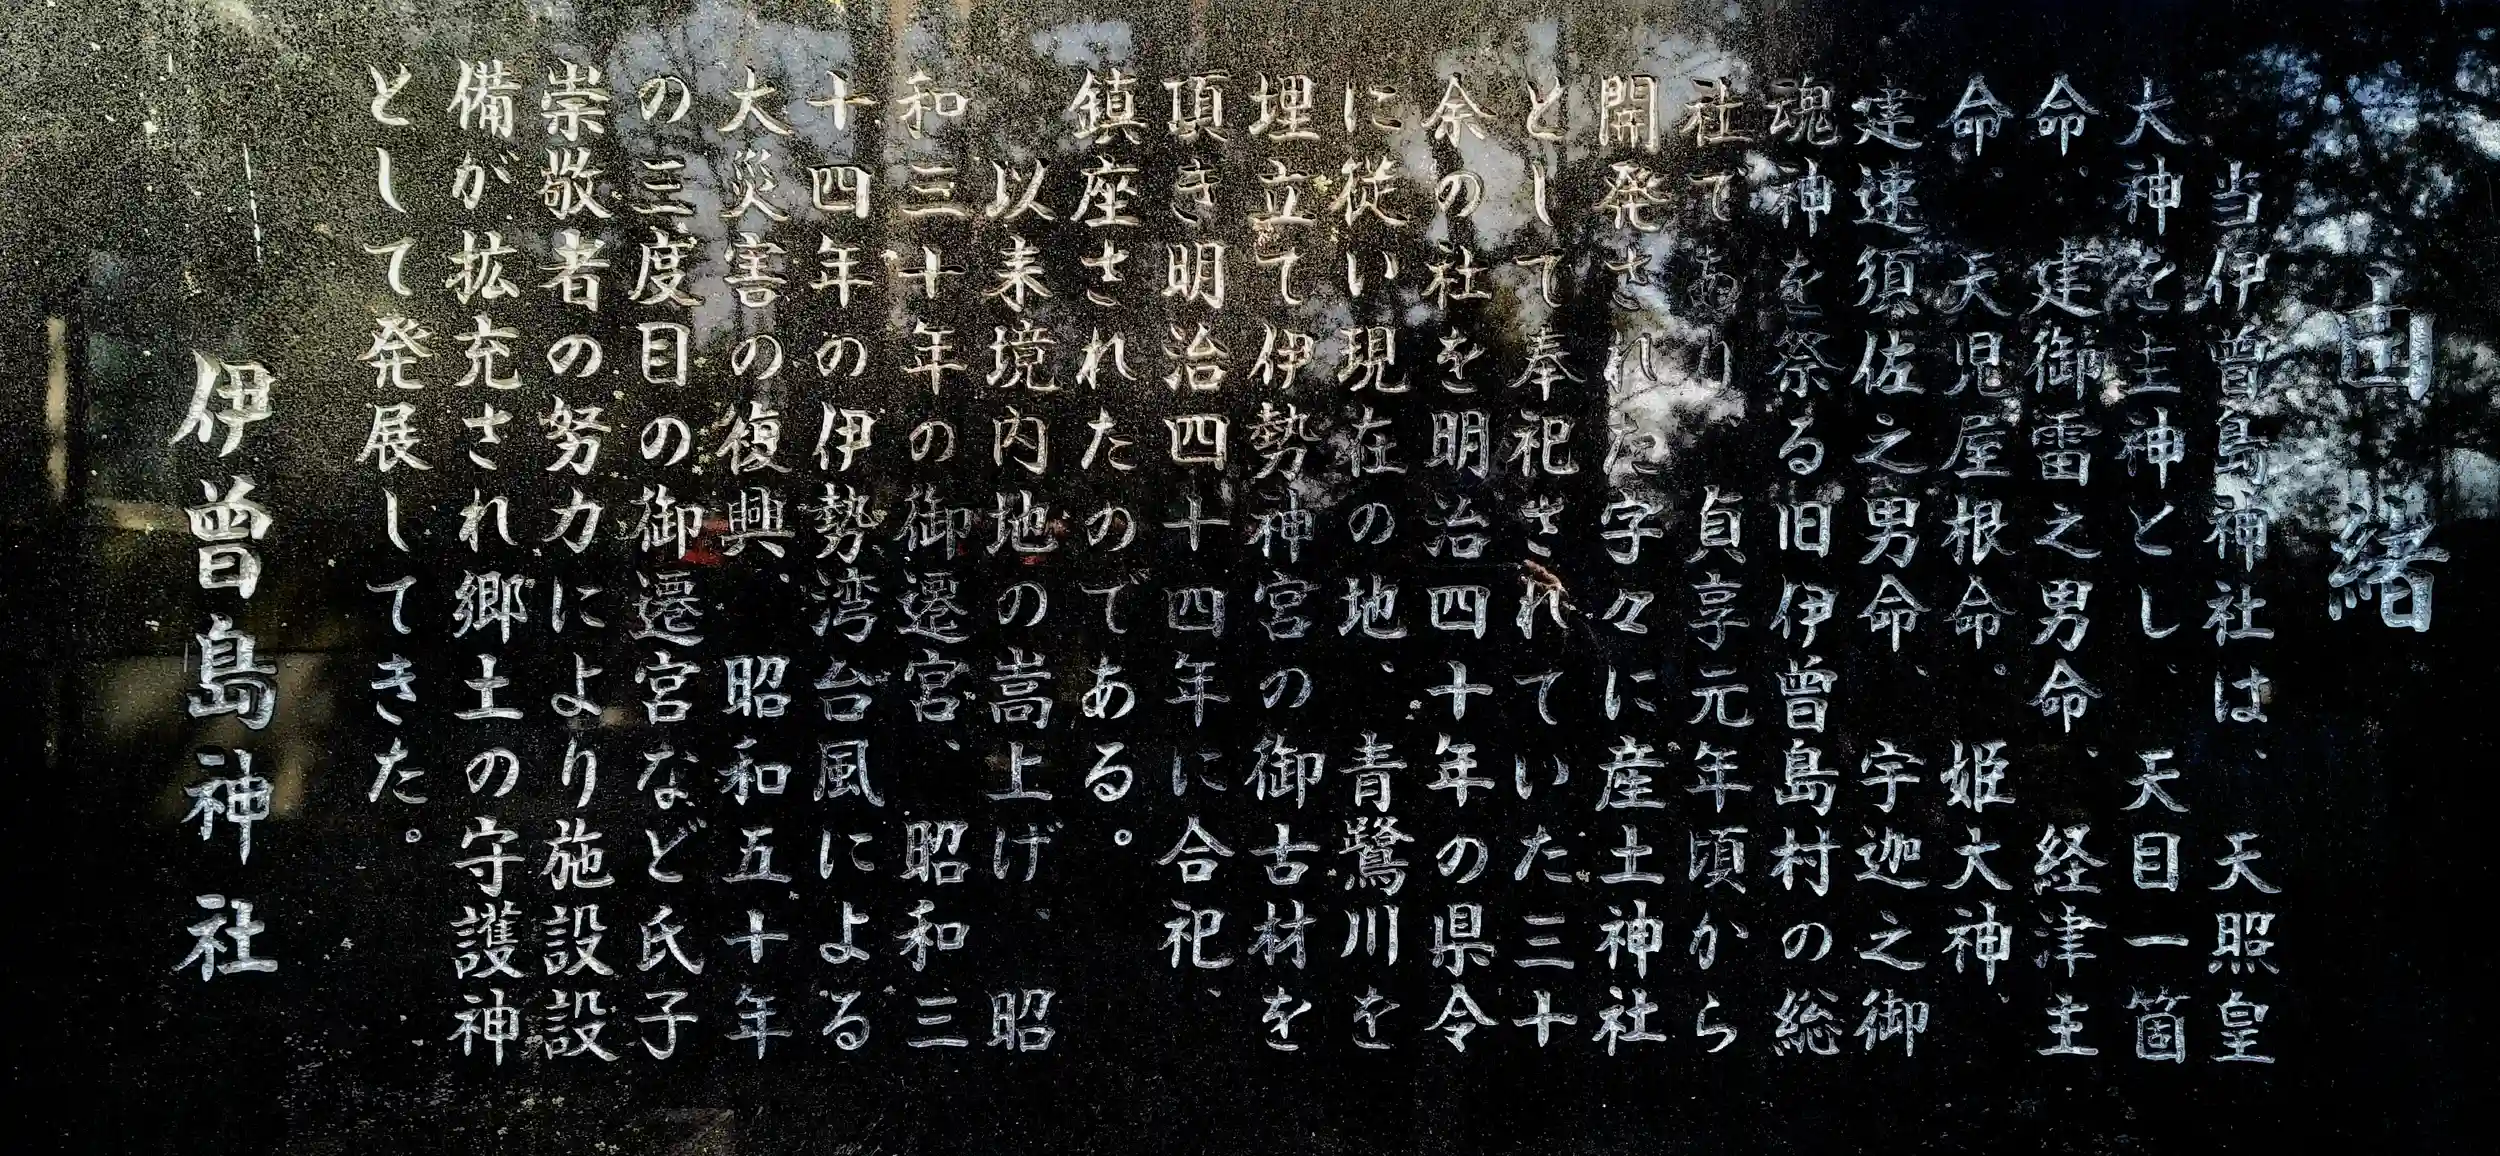 由緒
当伊曽島神社は、天照皇
大神を主神とし、天目一箇
命、建御雷之男命、経津主
命、天児屋根命。姫大神、
建速須佐之男命、宇迦之御
魂神を祭る旧伊曽島村の総
社であり、貞享元年頃から
開発された字々に産土神社
として奉祀されていた三十
余の社を明治四十年の県令
に従い現在の地、青鷺川を
埋立て伊勢神宮の御古材を
頂き明治四十四年に合祀、
鎮座されたのである。
以来境内地の嵩上げ、昭
和三十年の御遷宮、昭和三
十四年の伊勢湾台風による
大災害の復興、昭和五十年
の三度目の御遷宮など氏子
崇敬者の努力により施設設
備が拡充され郷土の守護神
として発展してきた。
伊曽島神社